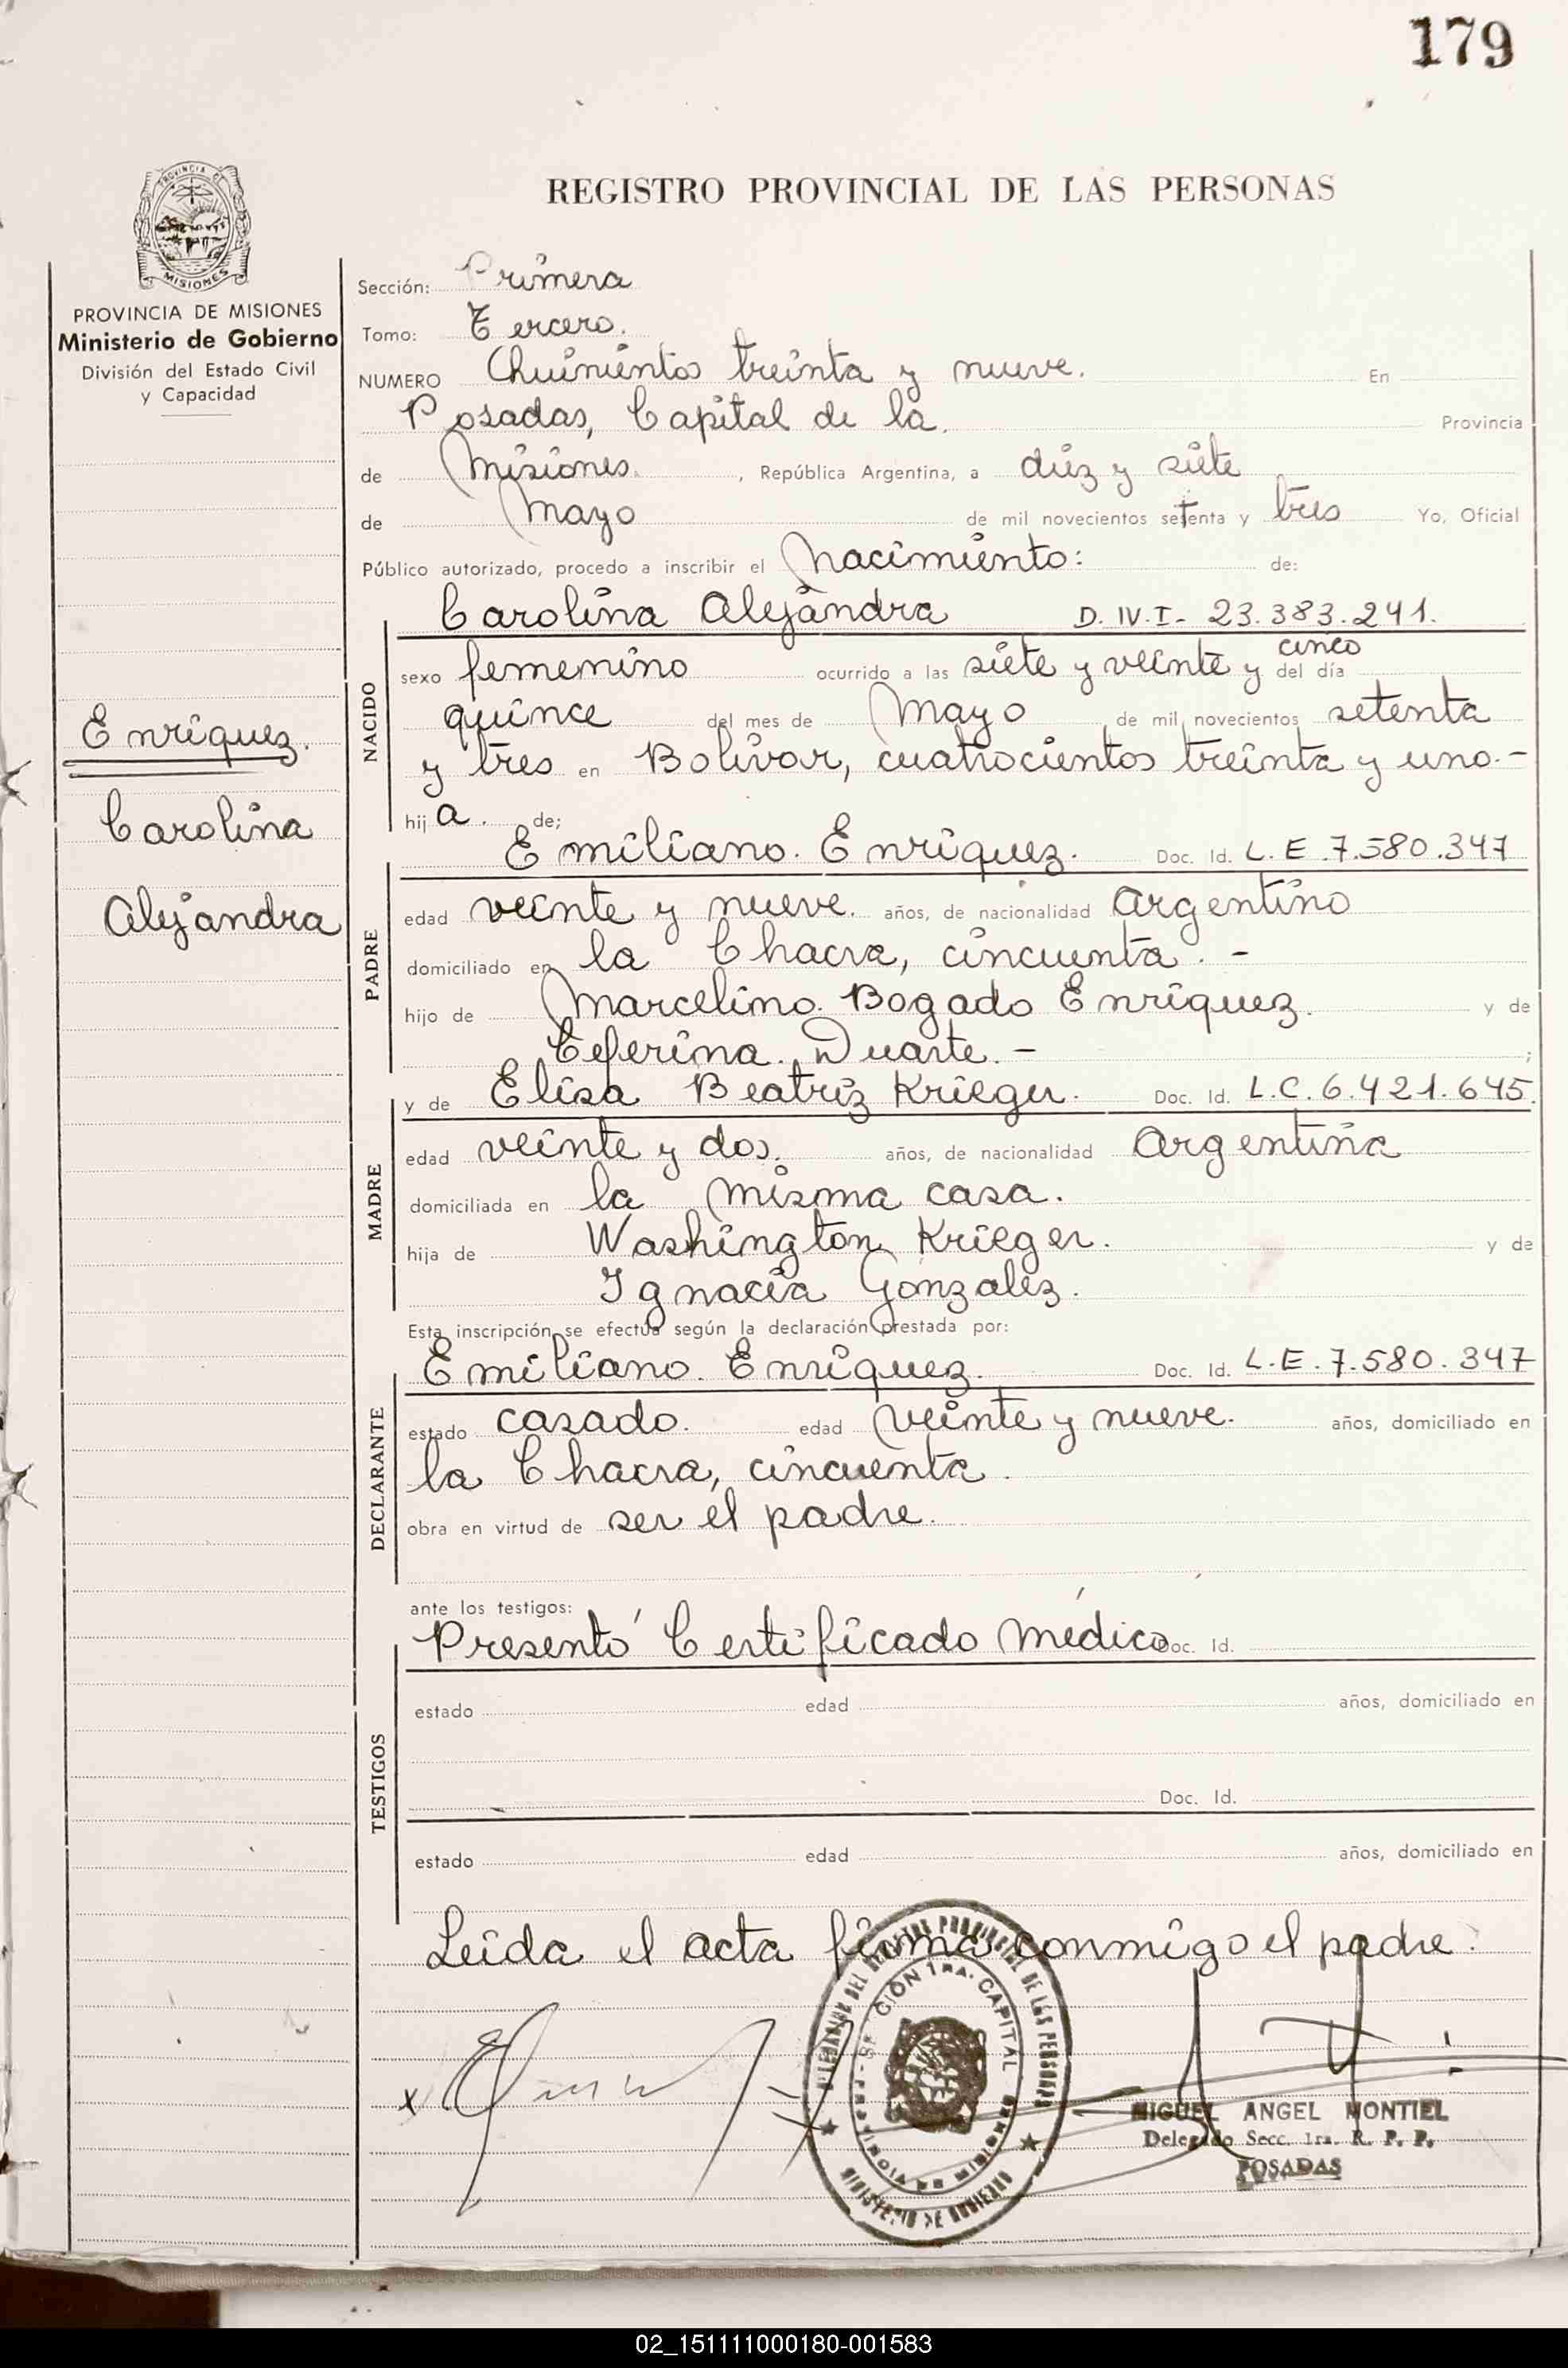 179
REGISTRO PROVINCIAL DE LAS PERSONAS
PROVINCIA DE
MISIONES
PROVINCIA DE MISIONES
Ministerio de Gobierno
División del Estado Civil
y Capacidad
Enríquez.
Carolina
Alejandra
Sección: Primera
Tomo: Tercero.
NUMERO Quinientos treinta y nueve. En
Posadas, Capital de la Provincia
de Misiones. , República Argentina, a diez y siete
de Mayo de mil novecientos setenta y tres Yo, Oficial
Público autorizado, procedo a inscribir el Nacimiento: de:
NACIDO
Carolina Alejandra D. IV. I- 23.383.241.
sexo femenino ocurrido a las siete y veinte y cinco del día
quince del mes de Mayo de mil novecientos setenta
y tres en Bolívar, cuatrocientos treinta y uno.-
hij a. de;
PADRE
Emiliano. Enríquez. Doc. Id. L. E. 7.580.347
edad veinte y nueve. años, de nacionalidad Argentino
domiciliado en la Chacra, cincuenta. -
hijo de Marcelino. Bogado Enríquez. y de
Ceferina. Duarte. - ;
MADRE
y de Elisa Beatriz Krieger. Doc. Id. L.C. 6.421.645.
edad veinte y dos. años, de nacionalidad Argentina
domiciliada en la misma casa.
hija de Washington Krieger. y de
Ignacia Gonzalez.
Esta inscripción se efectúa según la declaración prestada por:
DECLARANTE
Emiliano. Enríquez. Doc. Id. L.E. 7.580.347
estado casado. edad veinte y nueve. años, domiciliado en
la Chacra, cincuenta.
obra en virtud de ser el padre.
ante los testigos:
TESTIGOS
Presentó Certificado Médico Doc. Id.
estado edad años, domiciliado en
Doc. Id.
estado edad años, domiciliado en
Leida el acta firma conmigo el padre.
x
DEL REGISTRO PROVINCIAL DE LAS PERSONAS
SECCION 1ra. CAPITAL
PROVINCIA DE MISIONES
MINISTERIO DE GOBIERNO
MIGUEL ANGEL MONTIEL
Delegado Secc. 1ra. R. P. P.
POSADAS
02_151111000180-001583